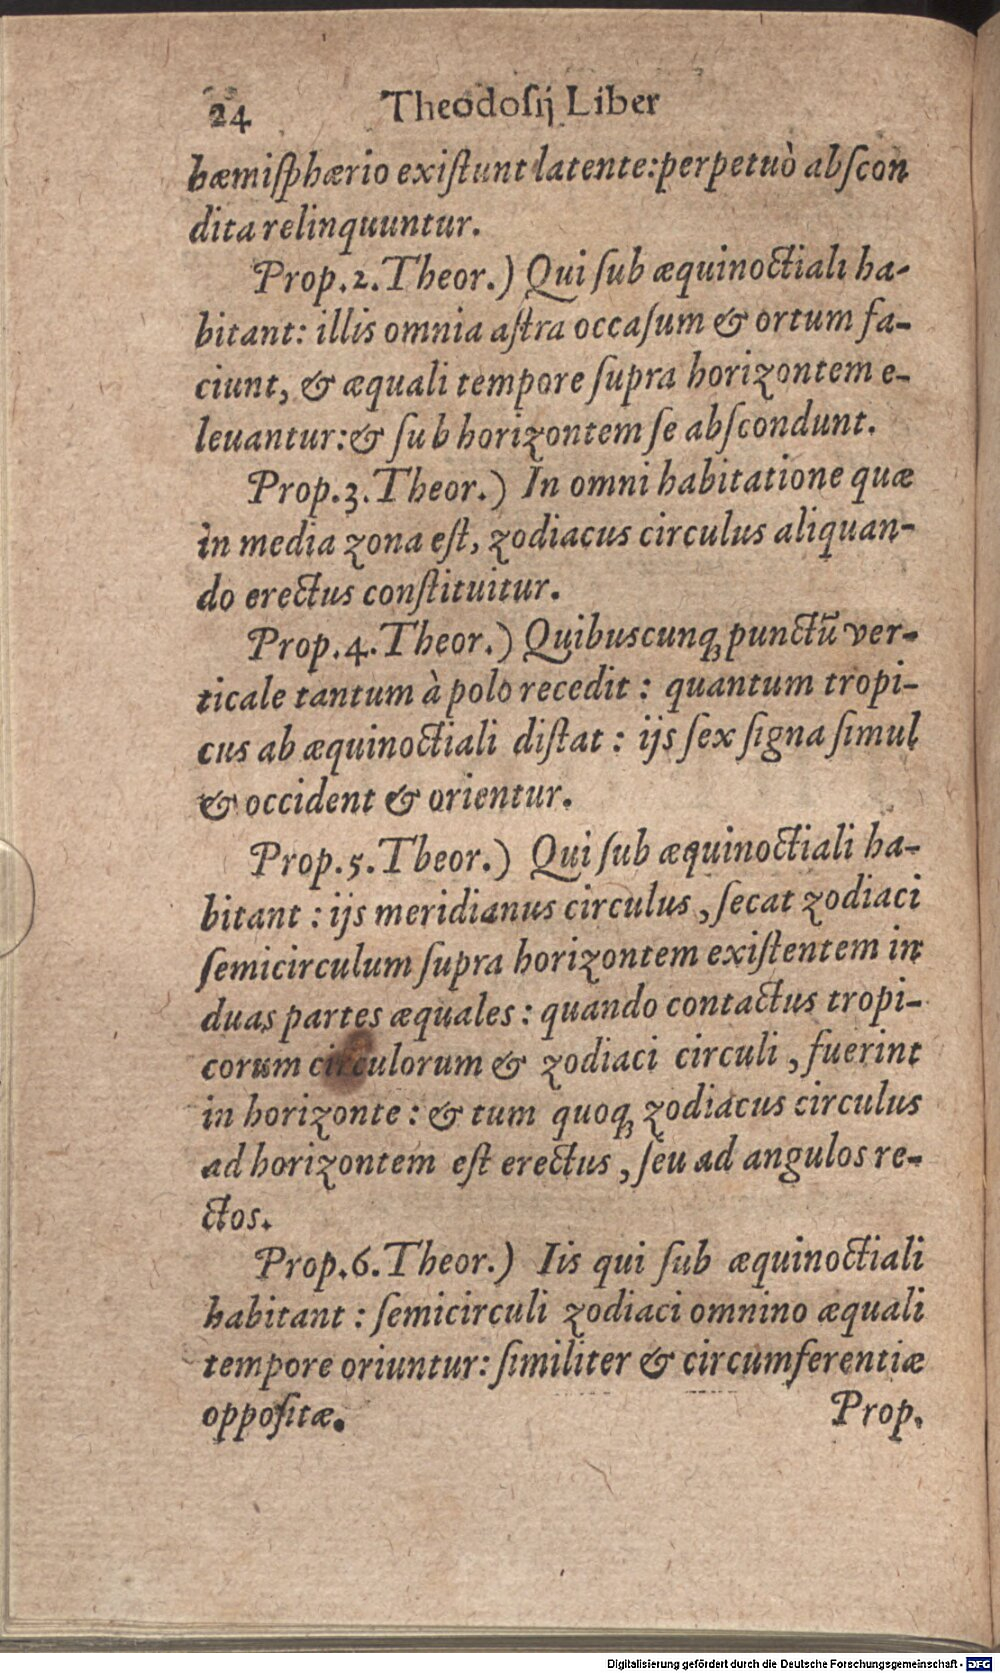 24 Theodoſij Liber
hæmiſphærio exiſtunt latente: perpetuò abſcon
dita relinquuntur.
Prop.2.Theor.) Qui ſub æquinoctiali ha-
bitant: illis omnia aſtra occaſum & ortum fa-
ciunt, & æquali tempore ſupra horizontem e-
leuantur: & ſub horizontem ſe abſcondunt.
Prop.3.Theor.) In omni habitatione quæ
in media zona eſt, zodiacus circulus aliquan-
do erectus conſtituitur.
Prop.4.Theor.) Quibuscunqꝫ punctũ ver-
ticale tantum à polo recedit: quantum tropi-
cus ab æquinoctiali diſtat: ijs ſex ſigna ſimul
& occident & orientur.
Prop.5.Tbeor.) Qui ſub æquinoctiali ha-
bitant: ijs meridianus circulus, ſecat zodiaci
ſemicirculum ſupra horizontem exiſtentem in
duas partes æquales: quando contactus tropi-
corum circulorum & zodiaci circuli, fuerint
in horizonte: & tum quoqꝫ zodiacus circulus
ad horizontem eſt erectus, ſeu ad angulos re-
ctos.
Prop.6.Theor.) Iis qui ſub æquinoctiali
habitant: ſemicirculi zodiaci omnino æquali
tempore oriuntur: ſimiliter & circumferentiæ
oppoſitæ. Prop.
Digitalisierung gefördert durch die Deutsche Forschungsgemeinschaft - DFG